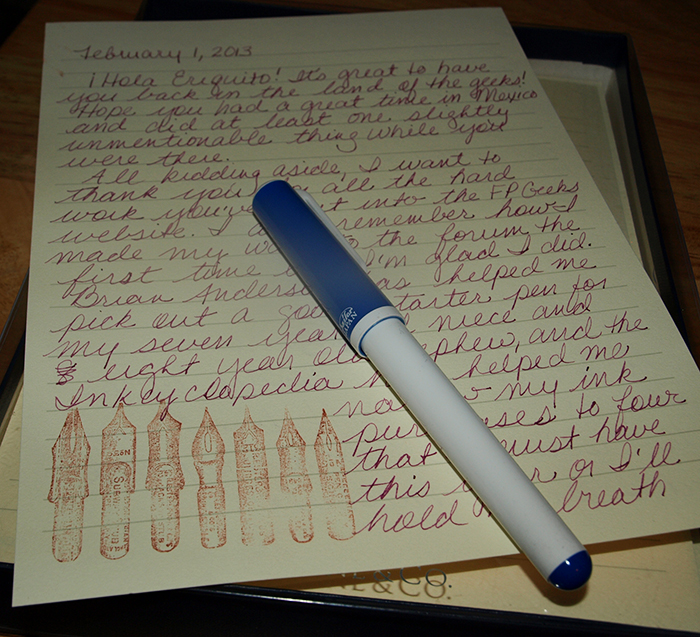 February 1, 2013
¡Hola Eriquito! It's great to have
you back in the land of the geeks!
Hope you had a great time in Mexico
and did at least one slightly
unmentionable thing while you
were there.
All kidding aside, I want to
thank you all the hard
work you've into the FPGeeks
website. I remember how I
made my the forum the
first time I'm glad I did.
Brian helped me
pick out a starter pen for
my seven year niece and
eight year old nephew, and the
Inkyclopedia helped me
my ink
to four
that must have
this or I'll
hold breath
JAPAN
& CO.